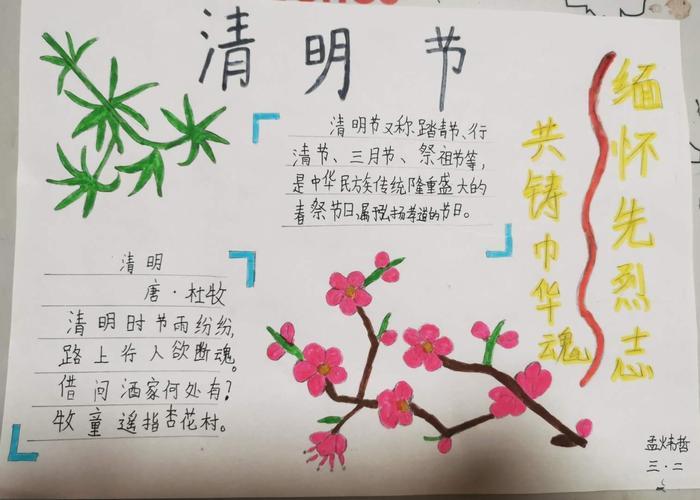 清明节
清明节又称踏青节、行
清节、三月节、祭祖节等,
是中华民族传统隆重盛大的
春祭节日,属弘扬孝道的节日。
缅怀先烈志
共铸中华魂
清明
唐·杜牧
清明时节雨纷纷,
路上行人欲断魂。
借问酒家何处有?
牧童遥指杏花村。
孟炜哲
三·二